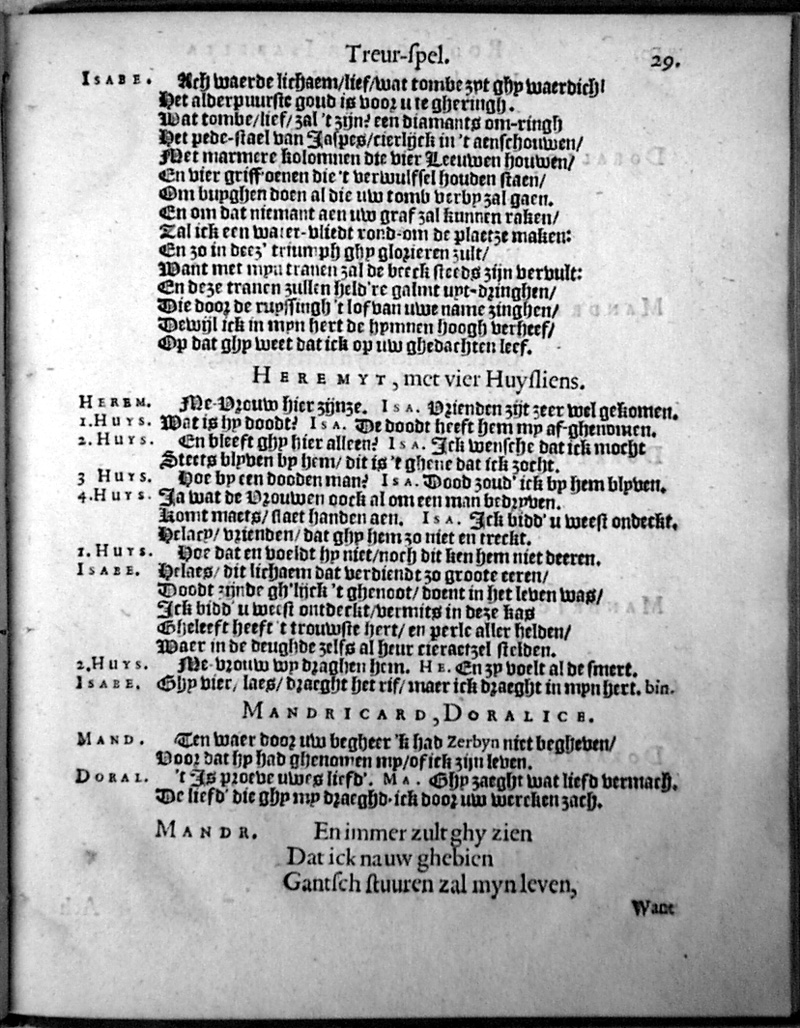 Treur-spel. 29.
ISABE. Ach waerde lichaem/lief/wat tombe zyt ghy waerdich!
Het alderpuurste goud is voor u te gheringh.
Wat tombe/lief/zal 't zijn? een diamants om-ringh
Het pede-stael van Jaspes/cierlijck in 't aenschouwen/
Met marmere kolomnen die vier Leeuwen houwen/
En vier griff'oenen die 't verwulfsel houden staen/
Om buyghen doen al die uw tomb verby zal gaen.
En om dat niemant aen uw graf zal kunnen raken/
Zal ick een water-vliedt rond-om de plaetze maken:
En zo in deez' triumph ghy glorieren zult/
Want met myn tranen zal de beeck steeds zijn vervult:
En deze tranen zullen held're galmt uyt-dringhen/
Die door de ruyssingh 't lof van uwe name zinghen/
Dewijl ick in myn hert de hymnen hoogh verheef/
Op dat ghy weet dat ick op uw ghedachten leef.
HEREMYT, met vier Huysliens.
HEREM. Me-Vrouw hier zijnze. ISA. Vrienden zijt zeer wel gekomen.
1.HUYS. Wat is hy doodt? ISA. De doodt heeft hem my af-ghenomen.
2.HUYS. En bleeft ghy hier alleen? ISA. Ick wensche dat ick mocht
Steets blyven by hem/dit is 't ghene dat ick zocht.
3 HUYS. Hoe by een dooden man? ISA. Dood zoud' ick by hem blyven.
4.HUYS. Ja wat de Vrouwen oock al om een man bedryven.
Komt maets/slaet handen aen. ISA. Ick bidd' u weest ondeckt,
Helacy/vrienden/dat ghy hem zo niet en treckt.
1.HUYS. Hoe dat en voeldt hy niet/noch dit ken hem niet deeren.
ISABE. Helaes/dit lichaem dat verdiendt zo groote eeren/
Doodt zijnde gh'lijck 't ghenoot/doent in het leven was/
Ick bidd' u weest ontdeckt/vermits in deze kas
Gheleeft heeft 't trouwste hert/en perle aller helden/
Waer in de deughde zelfs al heur cieraetzel stelden.
2.HUYS. Me-vrouw wy draghen hem. HE. En zy voelt al de smert.
ISABE. Ghy vier/laes/draeght het rif/maer ick draeght in myn hert. bin.
MANDRICARD, DORALICE.
MAND. Ten waer door uw begheer 'k had Zerbyn niet begheven/
Voor dat hy had ghenomen my/of ick zijn leven.
DORAL. 't Is proeve uwes liefd'. MA. Ghy zaeght wat liefd vermach.
De liefd' die ghy my draeghd-ick door uw wercken zach.
MANDR. En immer zult ghy zien
Dat ick na uw ghebien
Gantsch stuuren zal myn leven,
Want